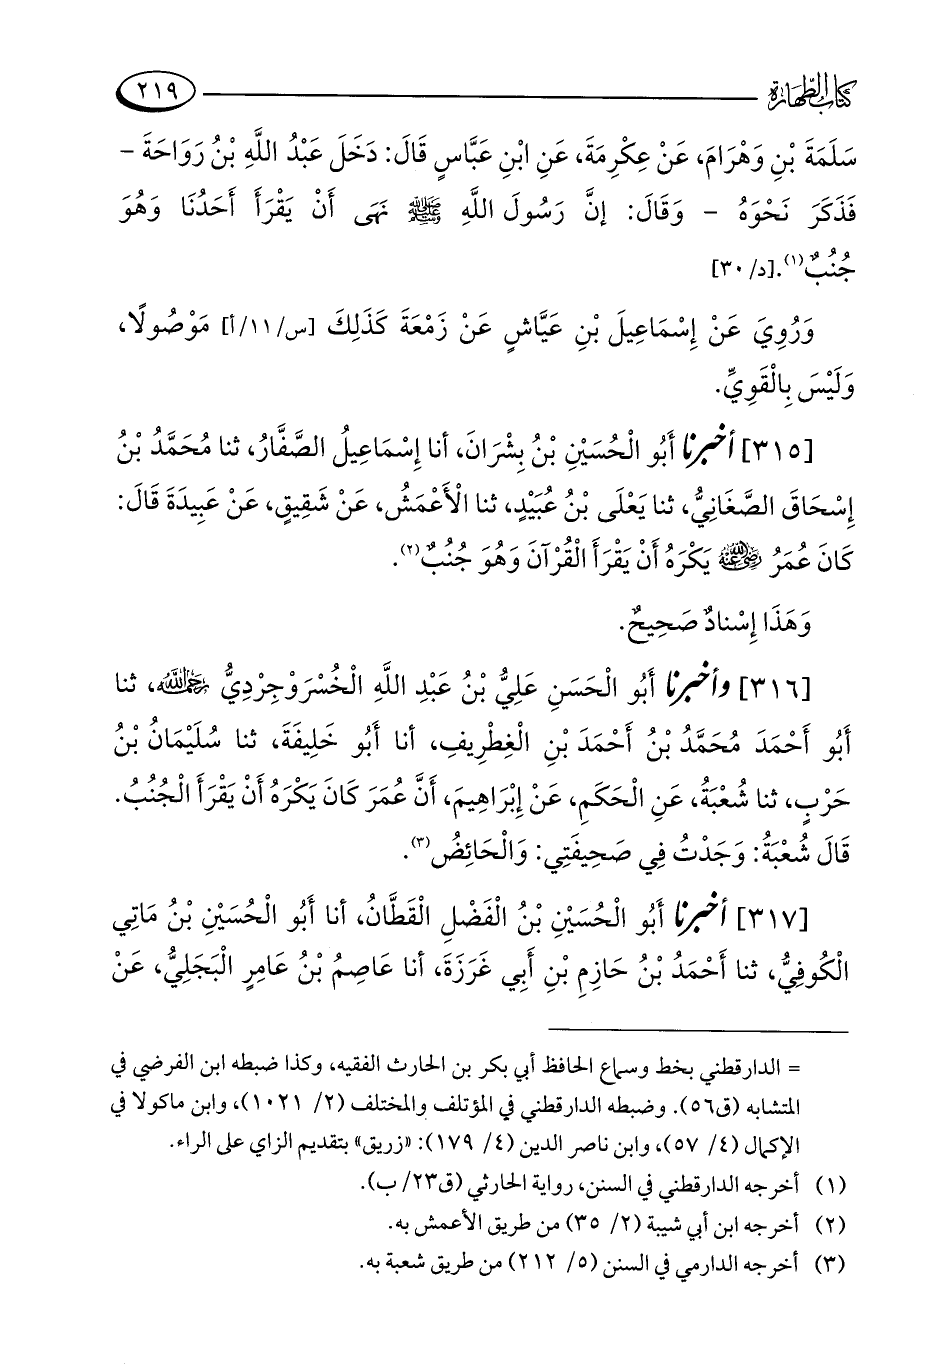 كتاب الطهارة ٢١٩
سَلَمَةَ بْنِ وَهْرَامَ، عَنْ عِكْرِمَةَ، عَنِ ابْنِ عَبَّاسٍ قَالَ: دَخَلَ عَبْدُ اللَّهِ بْنُ رَوَاحَةَ -
فَذَكَرَ نَحْوَهُ - وَقَالَ: إِنَّ رَسُولَ اللَّهِ ﷺ نَهَى أَنْ يَقْرَأَ أَحَدُنَا وَهُوَ
جُنُبٌ(١). [د/٣٠]
وَرُوِيَ عَنْ إِسْمَاعِيلَ بْنِ عَيَّاشٍ عَنْ زَمْعَةَ كَذَلِكَ [س/١١/أ] مَوْصُولًا،
وَلَيْسَ بِالْقَوِيِّ.
[٣١٥] أخبرنا أَبُو الْحُسَيْنِ بْنُ بِشْرَانَ، أنا إِسْمَاعِيلُ الصَّفَّارُ، ثنا مُحَمَّدُ بْنُ
إِسْحَاقَ الصَّغَانِيُّ، ثنا يَعْلَى بْنُ عُبَيْدٍ، ثنا الْأَعْمَشُ، عَنْ شَقِيقٍ، عَنْ عَبِيدَةَ قَالَ:
كَانَ عُمَرُ رضي الله عنه يَكْرَهُ أَنْ يَقْرَأَ الْقُرْآنَ وَهُوَ جُنُبٌ(٢).
وَهَذَا إِسْنَادٌ صَحِيحٌ.
[٣١٦] وأخبرنا أَبُو الْحَسَنِ عَلِيُّ بْنُ عَبْدِ اللَّهِ الْخُسْرَوْجِرْدِيُّ رحمه الله، ثنا
أَبُو أَحْمَدَ مُحَمَّدُ بْنُ أَحْمَدَ بْنِ الْغِطْرِيفِ، أنا أَبُو خَلِيفَةَ، ثنا سُلَيْمَانُ بْنُ
حَرْبٍ، ثنا شُعْبَةُ، عَنِ الْحَكَمِ، عَنْ إِبْرَاهِيمَ، أَنَّ عُمَرَ كَانَ يَكْرَهُ أَنْ يَقْرَأَ الْجُنُبُ.
قَالَ شُعْبَةُ: وَجَدْتُ فِي صَحِيفَتِي: وَالْحَائِضُ(٣).
[٣١٧] أخبرنا أَبُو الْحُسَيْنِ بْنُ الْفَضْلِ الْقَطَّانُ، أنا أَبُو الْحُسَيْنِ بْنُ مَاتِي
الْكُوفِيُّ، ثنا أَحْمَدُ بْنُ حَازِمِ بْنِ أَبِي غَرَزَةَ، أنا عَاصِمُ بْنُ عَامِرٍ الْبَجَلِيُّ، عَنْ
= الدارقطني بخط وسماع الحافظ أبي بكر بن الحارث الفقيه، وكذا ضبطه ابن الفرضي في
المتشابه (ق٥٦). وضبطه الدارقطني في المؤتلف والمختلف (٢/ ١٠٢١)، وابن ماكولا في
الإكمال (٤/ ٥٧)، وابن ناصر الدين (٤/ ١٧٩): «زريق» بتقديم الزاي على الراء.
(١) أخرجه الدارقطني في السنن، رواية الحارثي (ق٢٣/ ب).
(٢) أخرجه ابن أبي شيبة (٢/ ٣٥) من طريق الأعمش به.
(٣) أخرجه الدارمي في السنن (٥/ ٢١٢) من طريق شعبة به.